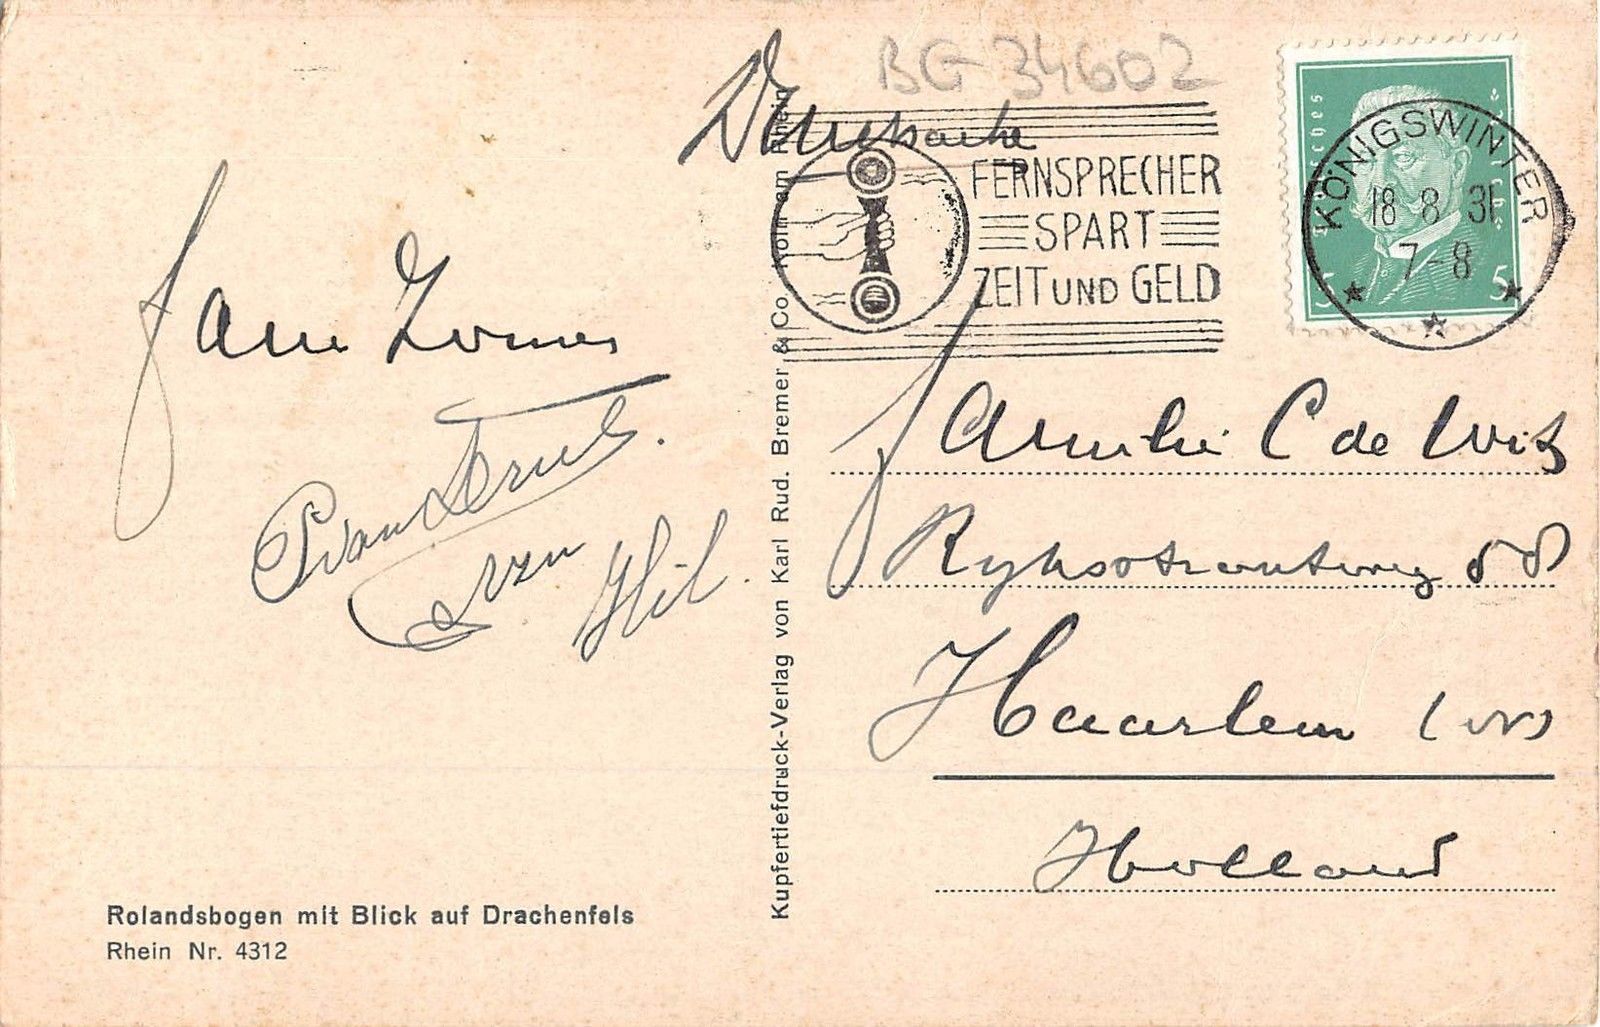 BG 34602
Drucksache
FERNSPRECHER
SPART
ZEIT UND GELD
KÖNIGSWINTER
18 8 31
7-8
5
P van
Hil.
Familie C de Wit
Ryksstraatweg 88
Haarlem
Holland
Kupfertiefdruck-Verlag von Karl Rud. Bremer & Co. Köln am Rhein
Rolandsbogen mit Blick auf Drachenfels
Rhein Nr. 4312